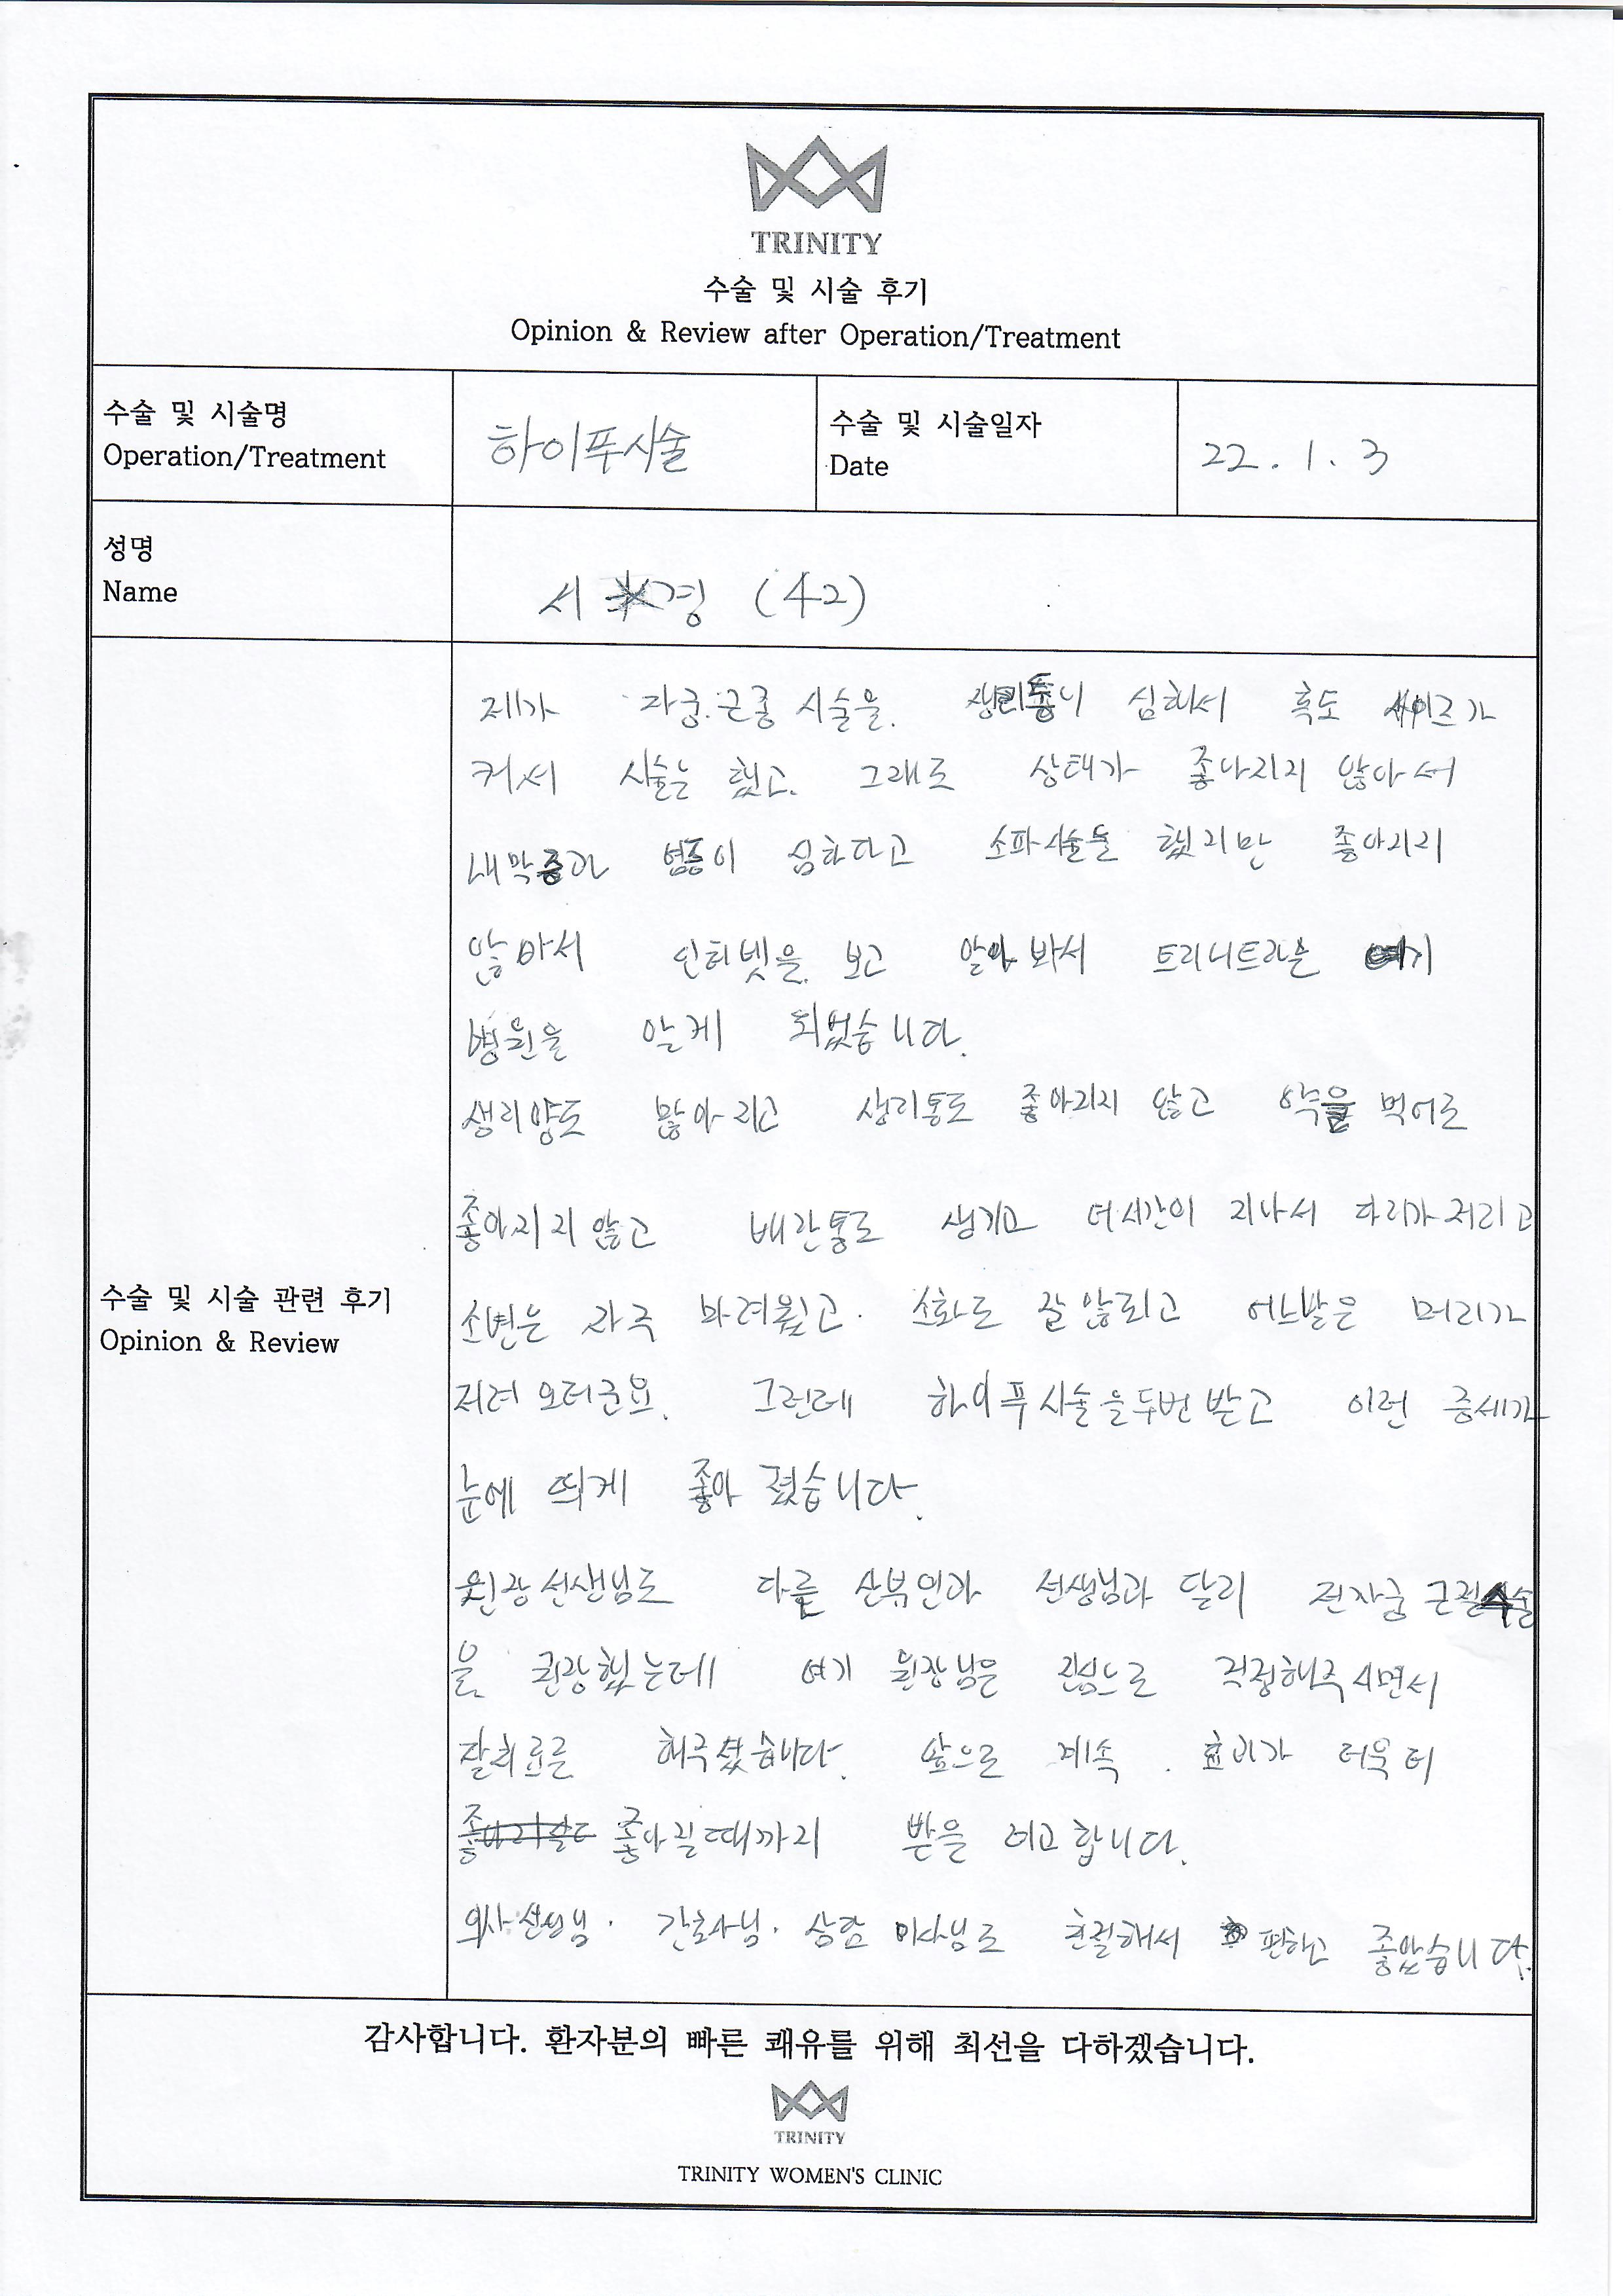 TRINITY
수술 및 시술 후기
Opinion & Review after Operation/Treatment
수술 및 시술명
Operation/Treatment
하이푸시술
수술 및 시술일자
Date
22.1.3
성명
Name
서 경 (42)
수술 및 시술 관련 후기
Opinion & Review
제가 자궁.근종 시술을. 생리통이 심하서 혹도 싸이즈가
커서 시술는 했고. 그래도 상태가 좋나지지 않아서
내막증과 염증이 심하다고 소파시술을 했지만 좋아지지
않아서 인터넷을 보고 알아 봐서 트리니트라는 여기
병원을 알게 되었습니다.
생리양도 많아 지고 생리통도 좋아지지 않고 약을 먹어도
좋아지지 않고 배란통도 생기고 더시간이 지나서 다리가 저리고
소변은 자주 마려웠고. 소화도 잘 않되고 어느날은 머리가
저려 오더군요. 그런데 하이푸시술을두번받고 이런 증세가
눈에 띄게 좋아 졌습니다.
원장선생님도 다른 산부인과 선생님과 달리 전자궁 근절수술
을 권장했는데 여기 원장님은 진심으로 걱정해주시면서
잘치료를 해주셨습니다. 앞으로 계속. 효과가 더욱더
좋아질때까지 받을 려고합니다.
의사선생님. 간호사님. 상담 이사님도 친절해서 편하고 좋았습니다.
감사합니다. 환자분의 빠른 쾌유를 위해 최선을 다하겠습니다.
TRINITY
TRINITY WOMEN'S CLINIC